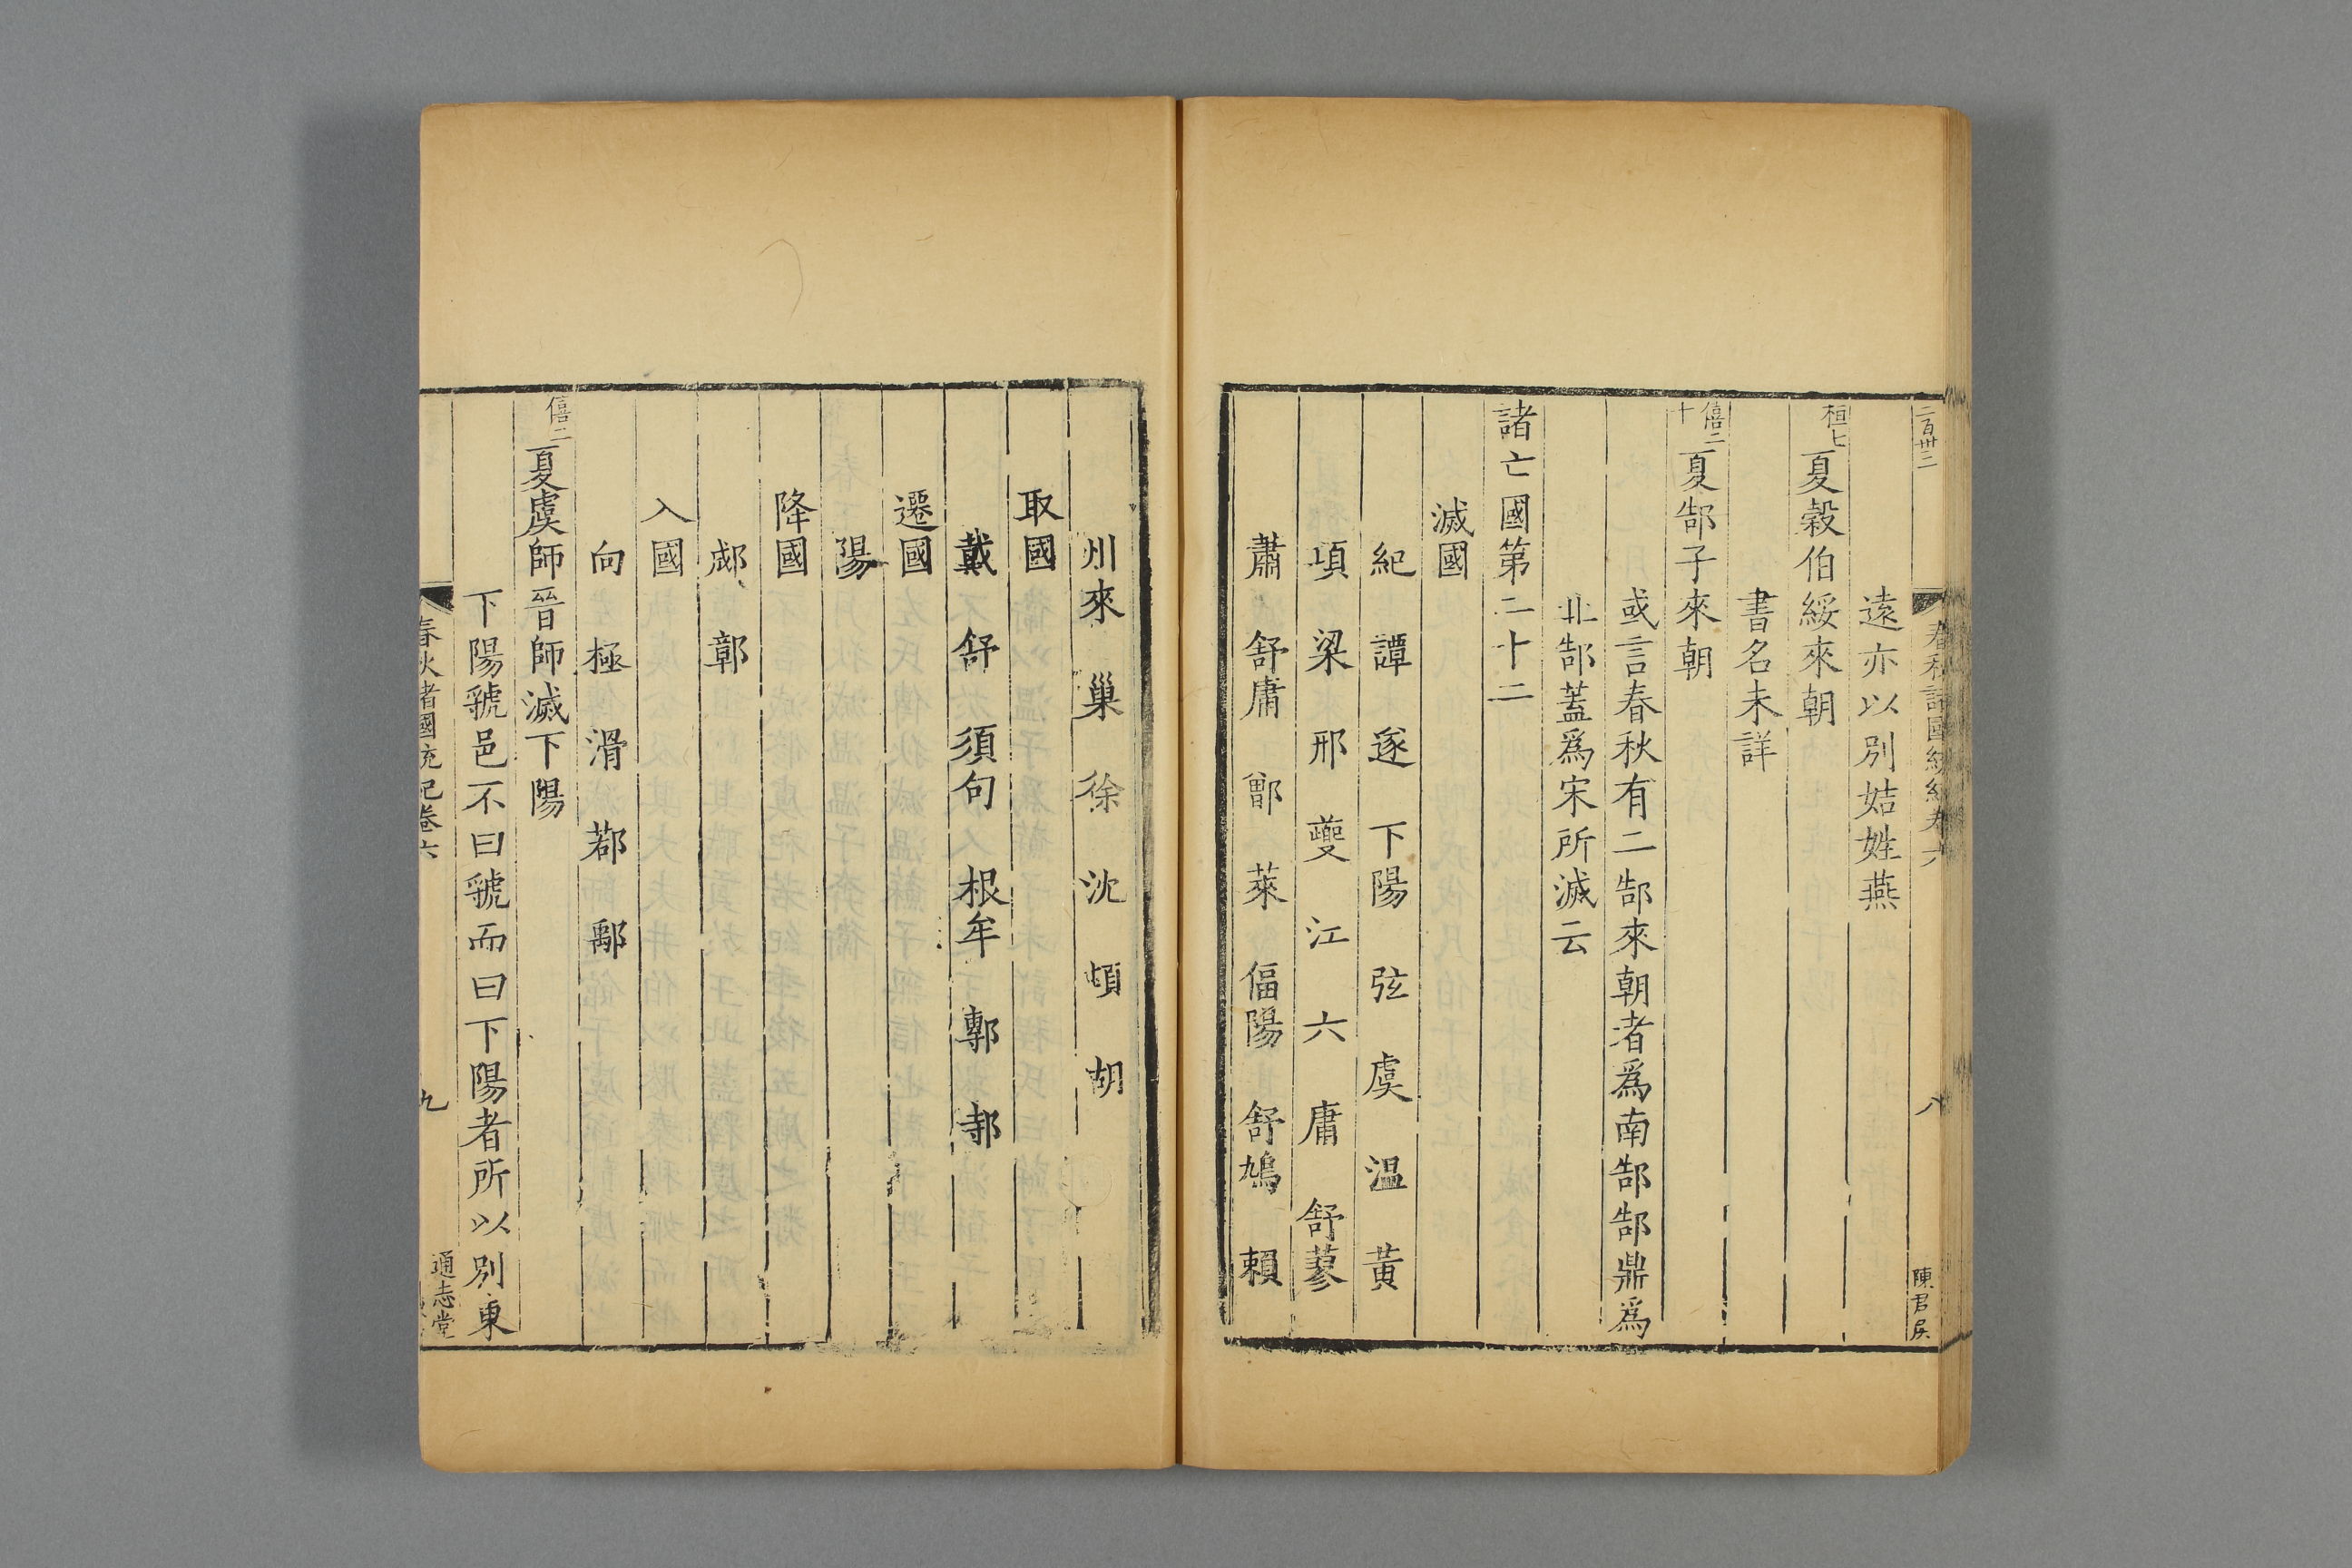 二百卅二
春秋諸國統紀卷六
八
陳君侯
遠亦以別姞姓燕
桓七
夏榖伯綏來朝
書名未詳
僖二十
夏郜子來朝
或言春秋有二郜來朝者爲南郜郜鼎爲
北郜蓋爲宋所滅云
諸亡國第二十二
滅國
紀 譚 遂 下陽 弦 虞 温 黃
項 梁 邢 夔 江 六 庸 舒蓼
蕭 舒庸 鄫 萊 偪陽 舒鳩 賴
州來 巢 徐 沈 頓 胡
取國
戴 舒 須句 根牟 鄟 邿
遷國
陽
降國
郕 鄣
入國
向 極 滑 鄀 鄅
僖二
夏虞師晉師滅下陽
下陽虢邑不曰虢而曰下陽者所以別東
春秋諸國統紀卷六
九
通志堂